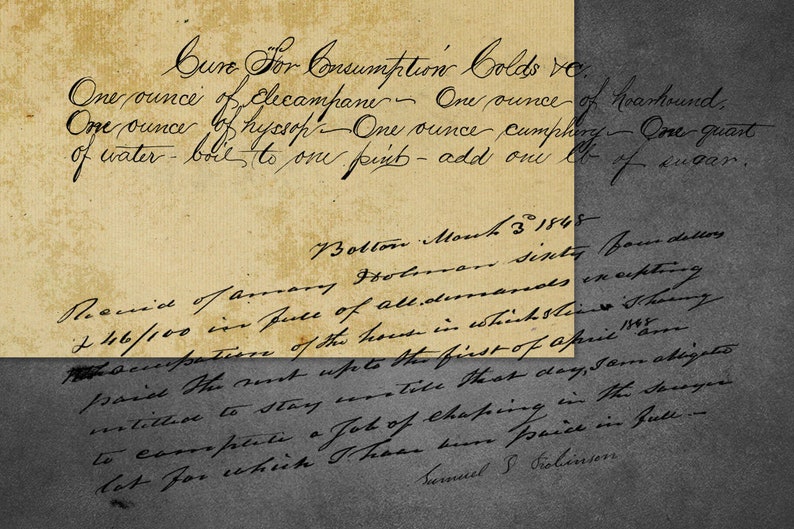 Cure For Consumption Colds &c.
One ounce of elecampane - One ounce of hoarhound.
One ounce of hyssop - One ounce cumphry - One quart
of water - boil to one pint - add one lb of sugar.
Bolton March 3d 1848
Received of amary Holman sixty four dollars
& 46/100 in full of all demands excepting
the occupation of the house in which I live I having
paid the rent up to the first of april 1848 am
intitled to stay untill that day, I am obligated
to complete a Job of Choping in the sawyer
lot for which I have been paid in full -
Samuel S Robinson